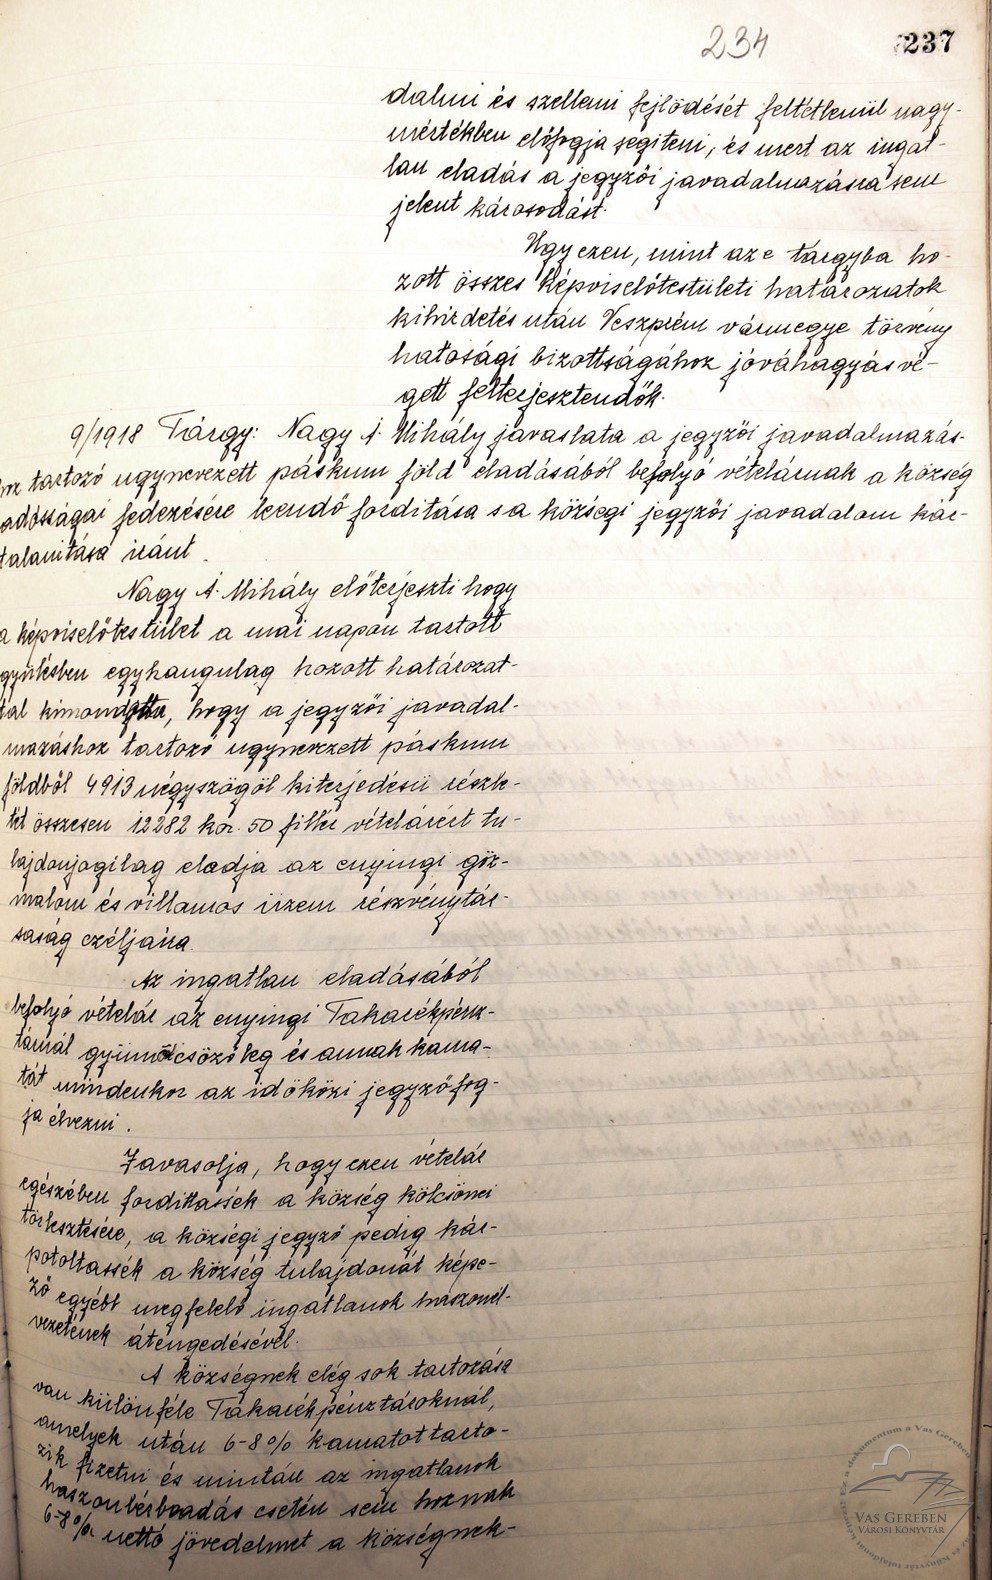 234
237
dalmi és szellemi fejlödését feltétlenül nagy-
mértékben elöfogja segiteni, és mert az ingat-
lan eladás a jegyzöi javadalmazásra sem
jelent károsodást.
Ugy ezen, mint az e tárgyba ho-
zott összes képviselötestületi határozatok
kihirdetés után Veszprém vármegye törvény
hatosági bizottságához jóváhagyás vé-
gett felterjesztendők.
9/1918 Tárgy: Nagy Á. Mihály javaslata a jegyzöi javadalmazás-
hoz tartozó ugynevezett páskum föld eladásából befolyó vételárnak a község
adósságai fedezésére leendő forditása s a községi jegyzöi javadalom kár-
talanitása iránt.
Nagy Á. Mihály elöterjeszti hogy
a képviselötestület a mai napon tartott
gyülésben egyhangulag hozott határozat-
tal kimondotta, hogy a jegyzöi javadal-
mazáshoz tartozó ugynevezett páskum
földböl 4913 négyszögöl kiterjedésü részle-
tét összesen 12282 kor. 50 fillér vételárért tu-
lajdonjogilag eladja az enyingi göz-
malom és villamos üzem részvénytár-
saság czéljára.
Az ingatlan eladásából
befolyó vételár az enyingi Takarékpénz-
tárnál gyümölcsözö leg és annak kama-
tát mindenkor az idöközi jegyzö fog-
ja élvezni.
Javasolja, hogy ezen vételár
egészében fordittassék a község kölcsönei
törlesztésére, a községi jegyzö pedig kár-
potoltassék a község tulajdonát képe-
zö egyébb megfelelö ingatlanok haszonél-
vezetének átengedésével.
A községnek elég sok tartozása
van különféle Takarékpénztáraknál,
amelyek után 6-8% kamatot tarto-
zik fizetni és miután az ingatlanok
haszonbérbeadás esetén sem hoznak
6-8%  nettó jövedelmet a községnek-
VAS GEREBEN
VÁROSI KÖNYVTÁR